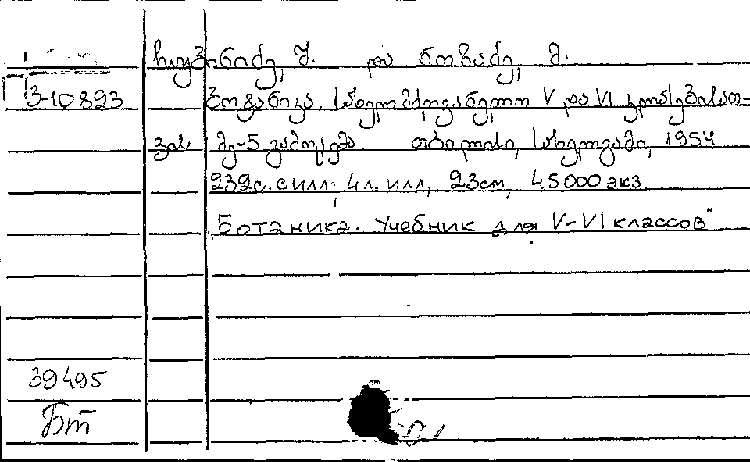 და ნოზაძე, მ.
3-10823
ბოტანიკა. სახელმძღვანელო V და VI კლასებისათ=
ვის. მე-5 გამოცემა. თბილისი, სახელგამი, 1954
232с. с илл. 4 л. илл, 23см, 45000 экз.
Ботаника. Учебник для V-VI классов"
39495
Бт